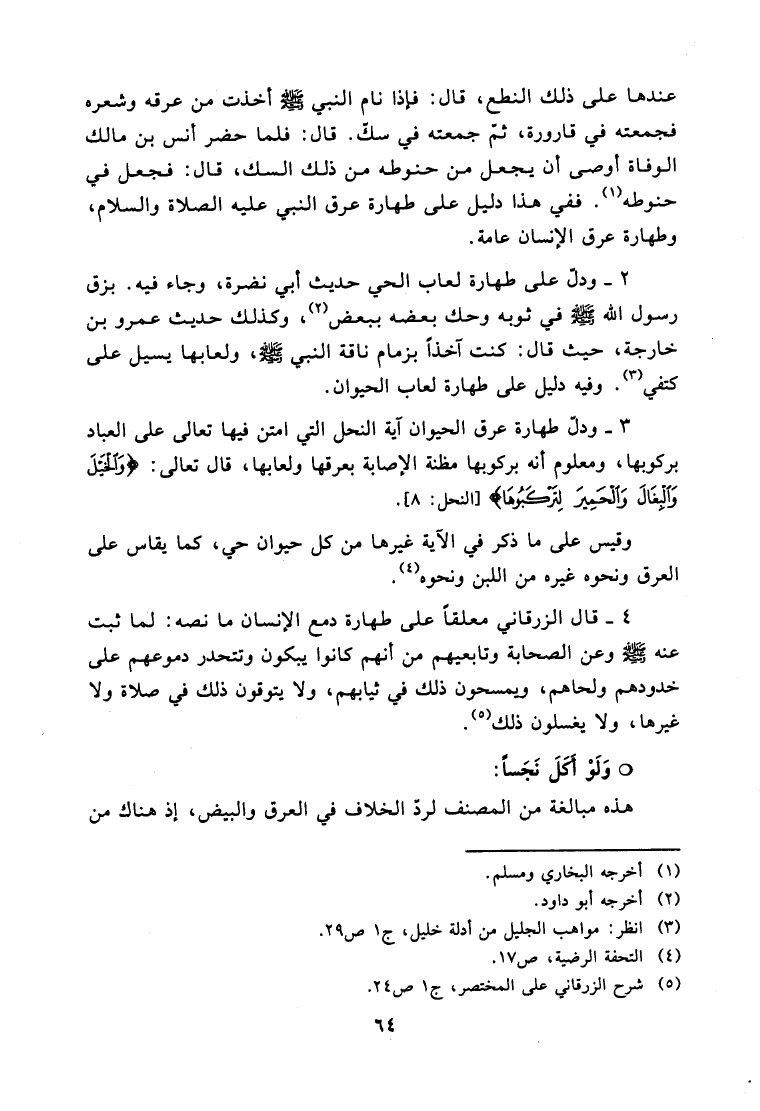 عندها على ذلك النطع، قال: فإذا نام النبي ﷺ أخذت من عرقه وشعره
فجمعته في قارورة، ثمّ جمعته في سكّ. قال: فلما حضر أنس بن مالك
الوفاة أوصى أن يجعل من حنوطه من ذلك السك، قال: فجعل في
حنوطه(١). ففي هذا دليل على طهارة عرق النبي عليه الصلاة والسلام،
وطهارة عرق الإنسان عامة.
٢ ـ ودلّ على طهارة لعاب الحي حديث أبي نضرة، وجاء فيه. بزق
رسول الله ﷺ في ثوبه وحك بعضه ببعض(٢)، وكذلك حديث عمرو بن
خارجة، حيث قال: كنت آخذاً بزمام ناقة النبي ﷺ، ولعابها يسيل على
كتفي(٣). وفيه دليل على طهارة لعاب الحيوان.
٣ ـ ودلّ طهارة عرق الحيوان آية النحل التي امتن فيها تعالى على العباد
بركوبها، ومعلوم أنه بركوبها مظنة الإصابة بعرقها ولعابها، قال تعالى: ﴿وَٱلْخَيْلَ
وَٱلْبِغَالَ وَٱلْحَمِيرَ لِتَرْكَبُوهَا﴾ [النحل: ٨].
وقيس على ما ذكر في الآية غيرها من كل حيوان حي، كما يقاس على
العرق ونحوه غيره من اللبن ونحوه(٤).
٤ ـ قال الزرقاني معلقاً على طهارة دمع الإنسان ما نصه: لما ثبت
عنه ﷺ وعن الصحابة وتابعيهم من أنهم كانوا يبكون وتتحدر دموعهم على
خدودهم ولحاهم، ويمسحون ذلك في ثيابهم، ولا يتوقون ذلك في صلاة ولا
غيرها، ولا يغسلون ذلك(٥).
○ وَلَوْ أَكَلَ نَجَساً:
هذه مبالغة من المصنف لردّ الخلاف في العرق والبيض، إذ هناك من
(١) أخرجه البخاري ومسلم.
(٢) أخرجه أبو داود.
(٣) انظر: مواهب الجليل من أدلة خليل، ج١ ص٢٩.
(٤) التحفة الرضية، ص١٧.
(٥) شرح الزرقاني على المختصر، ج١ ص٢٤.
٦٤